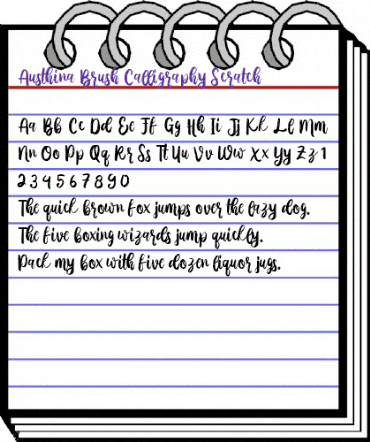 Austhina Brush Calligraphy Scratch
Aa Bb Cc Dd Ee Ff Gg Hh Ii Jj Kk Ll Mm
Nn Oo Pp Qq Rr Ss Tt Uu Vv Ww Xx Yy Zz 1
2 3 4 5 6 7 8 9 0
The quick brown fox jumps over the lazy dog.
The five boxing wizards jump quickly.
Pack my box with five dozen liquor jugs.